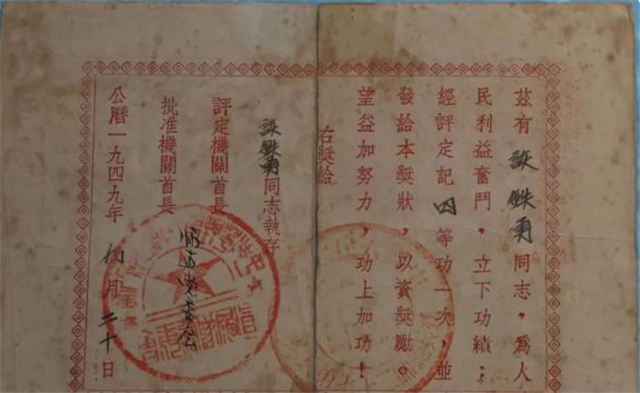 茲有 談鉄勇 同志，為人
民利益奮鬥，立下功績；
經評定記 四 等功一次，並
發給本獎狀，以資獎勵。
望益加努力，功上加功！
右獎給
談鉄勇同志執存
評定機關首長
批准機關首長
公曆一九四九年 八月 二十日